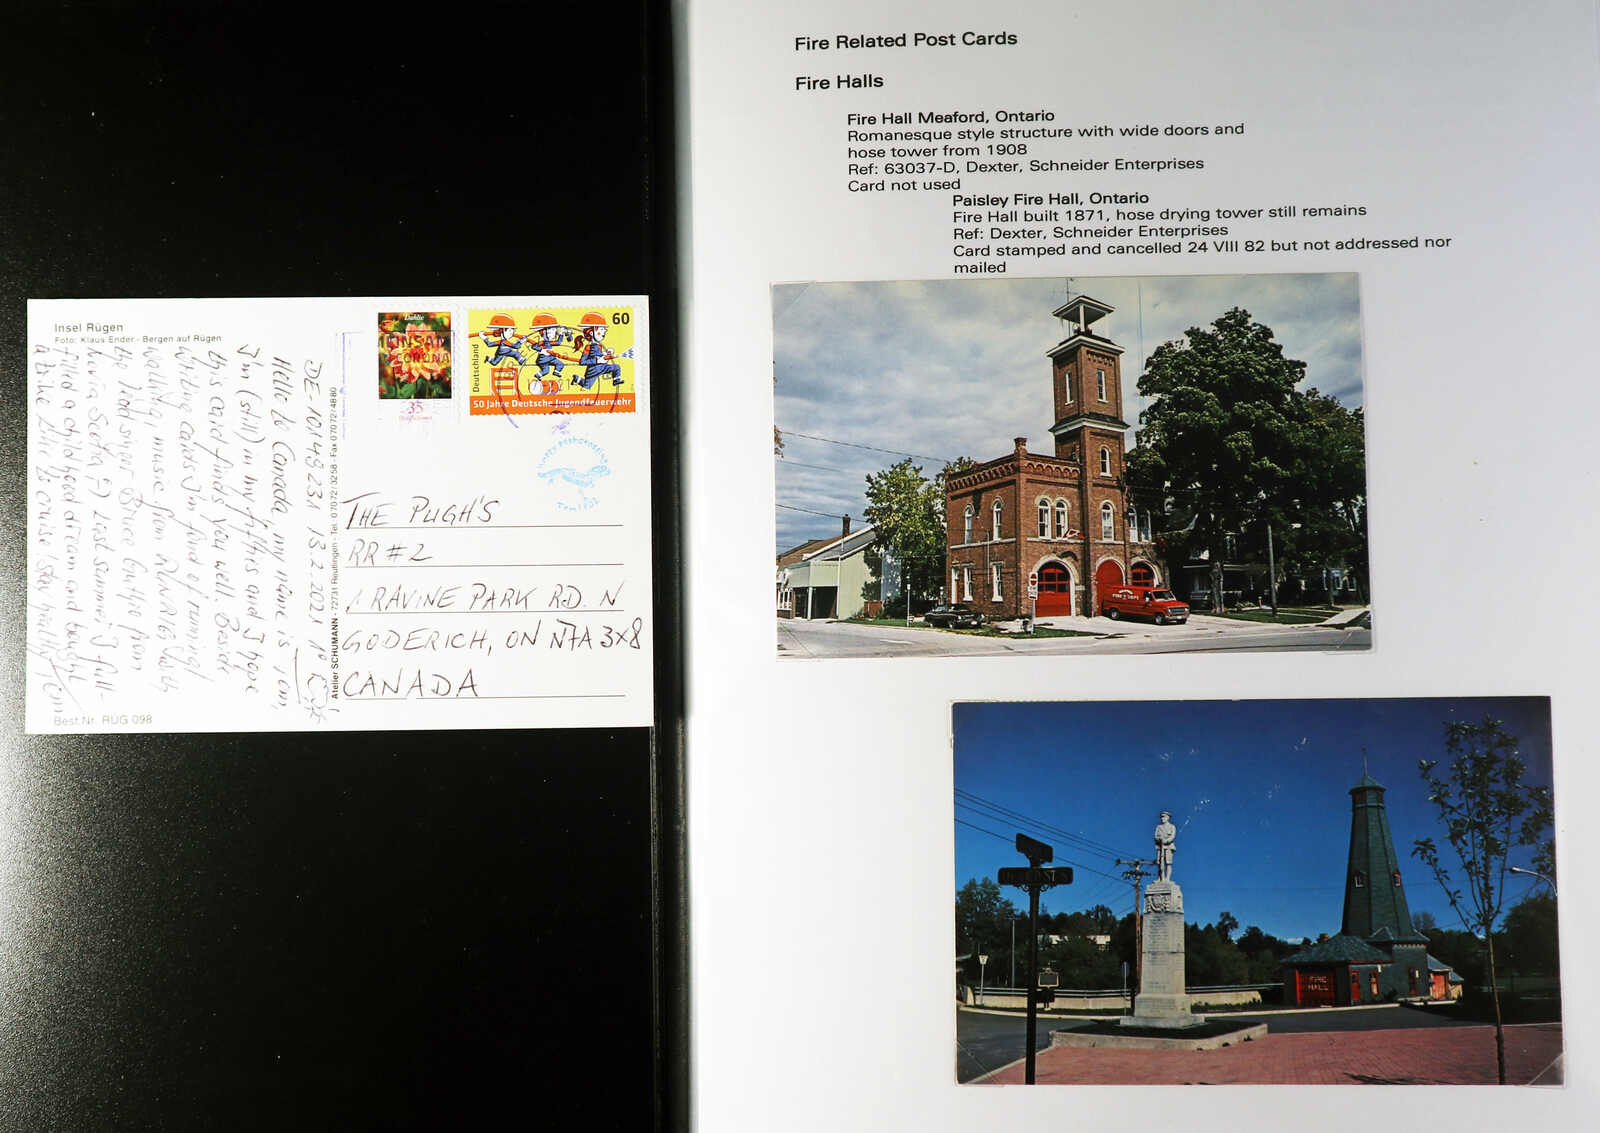 Insel Rügen
Foto: Klaus Ender - Bergen auf Rügen
Dahlie
EINSAM
CORONA
35
60
Deutschland
50 Jahre Deutsche Jugendfeuerwehr
HAPPY POSTCROSSING
DE 10148231 13.2.2021
Hello to Canada, my name is Tom,
I'm (still) in my fifties and I hope
this card finds you well. Beside
writing cards I'm fond of running/
walking, music from
the lead singer Bruce Guthro from
Nova Scotia :-) Last summer I ful-
filled a childhood dream and bought
Stay healthy Tom
Best.Nr. RÜG 098
Atelier SCHUMANN · 72731 Reutlingen · Tel. 0 70 72 / 32 58 · Fax 0 70 72 / 48 80
THE PUGH'S
RR #2
RAVINE PARK RD. N
GODERICH, ON N7A 3X8
CANADA
Fire Related Post Cards
Fire Halls
Fire Hall Meaford, Ontario
Romanesque style structure with wide doors and
hose tower from 1908
Ref: 63037-D, Dexter, Schneider Enterprises
Card not used
Paisley Fire Hall, Ontario
Fire Hall built 1871, hose drying tower still remains
Ref: Dexter, Schneider Enterprises
Card stamped and cancelled 24 VIII 82 but not addressed nor
mailed
FIRE DEPT
FIRE
HALL